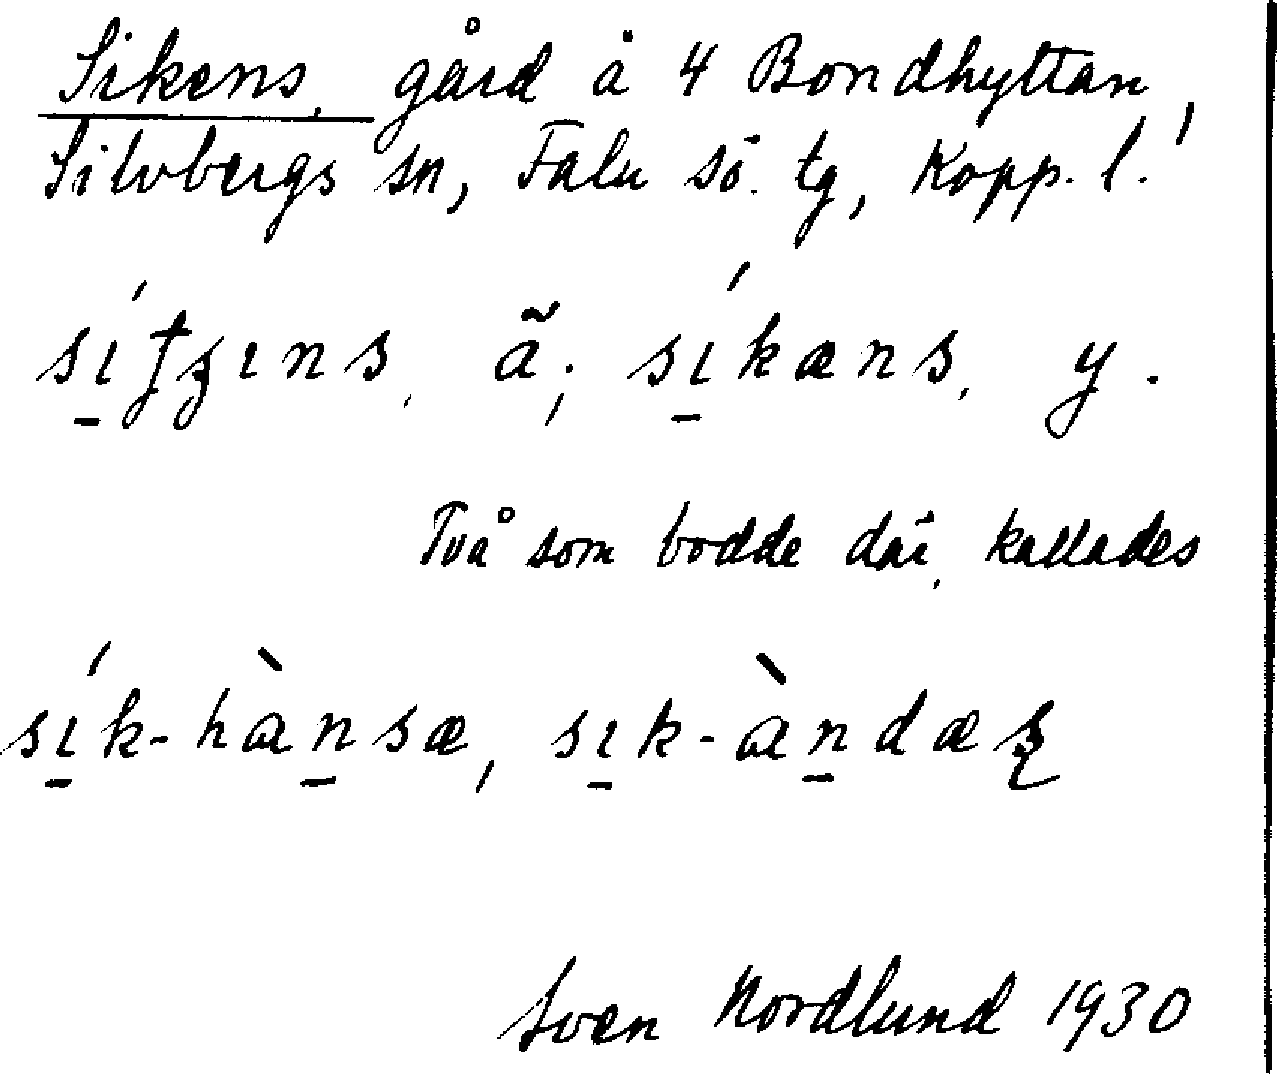 Sikens, gård å 4 Bondhyttan,
Silvbergs sn, Falu sö. tg, Kopp. l.
ä; síkæns, y.
Två som bodde där, kallades
sík-hànsæ, sık-àndæ
Sven Nordlund 1930